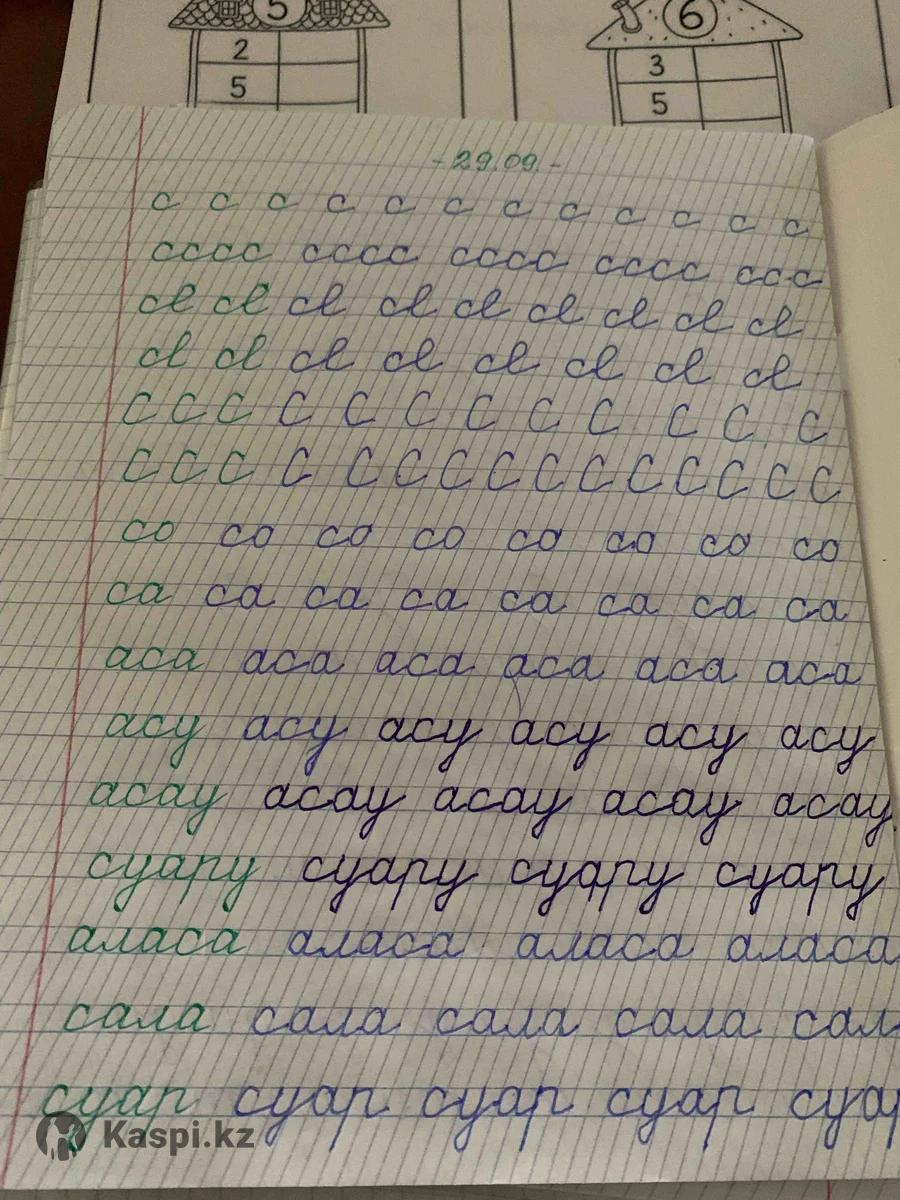 5 6
2 3
5 5
- 29.09. -
с с с с с с с с с с с с
сссс сссс сссс сссс ссс
се се се се се се се се се
се се се се се се се се
С С С С С С С С С С С С
С С С С С С С С С С С С С С
со со со со со со со со
са са са са са са са са
аса аса аса аса аса аса
асу асу асу асу асу асу
асау асау асау асау асау
суару суару суару суару
аласа аласа аласа аласа
сала сала сала сала сал
суар суар суар суар суар
Kaspi.kz